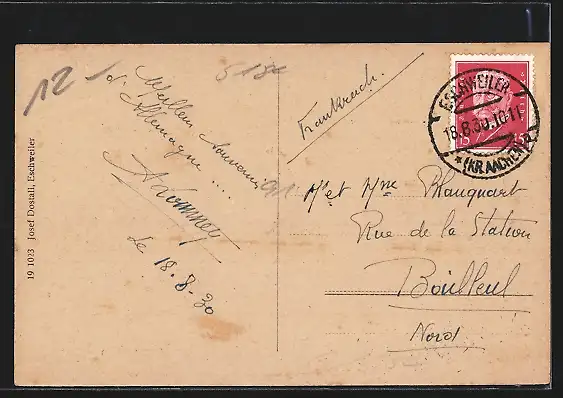 12
518
Meilleur Souvenir
d'Allemagne ....
Le 18-8-30
19 1023 Josef Dostall, Eschweiler
Frankreich.
ESCHWEILER
18.8.30.10-11
* (KR.AACHEN) a
15 15
Mr et Mme Blanquart
Rue de la Station
Bailleul
Nord